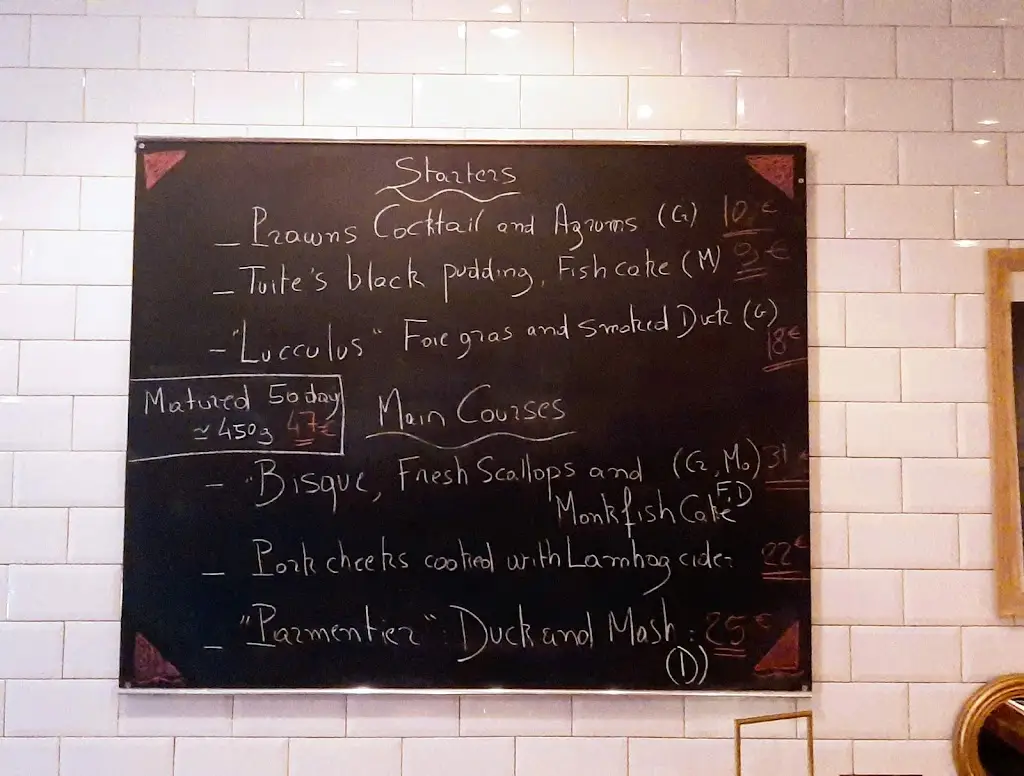 Starters
_ Prawns Cocktail and Agrums (G) 10 €
_ Tuite's black pudding, Fish cake (M) 9 €
- "Lucculus" Foie gras and smoked Duck (G)
18€
Matured 50 day
≃ 450g 47€
Main Courses
- Bisque, Fresh Scallops and (Cr, Mo) 31
Monkfish Cake F, D
_ Pork cheeks cooked with Lambog cider 22€
_ "Parmentier": Duck and Mash: 25 €
(D)